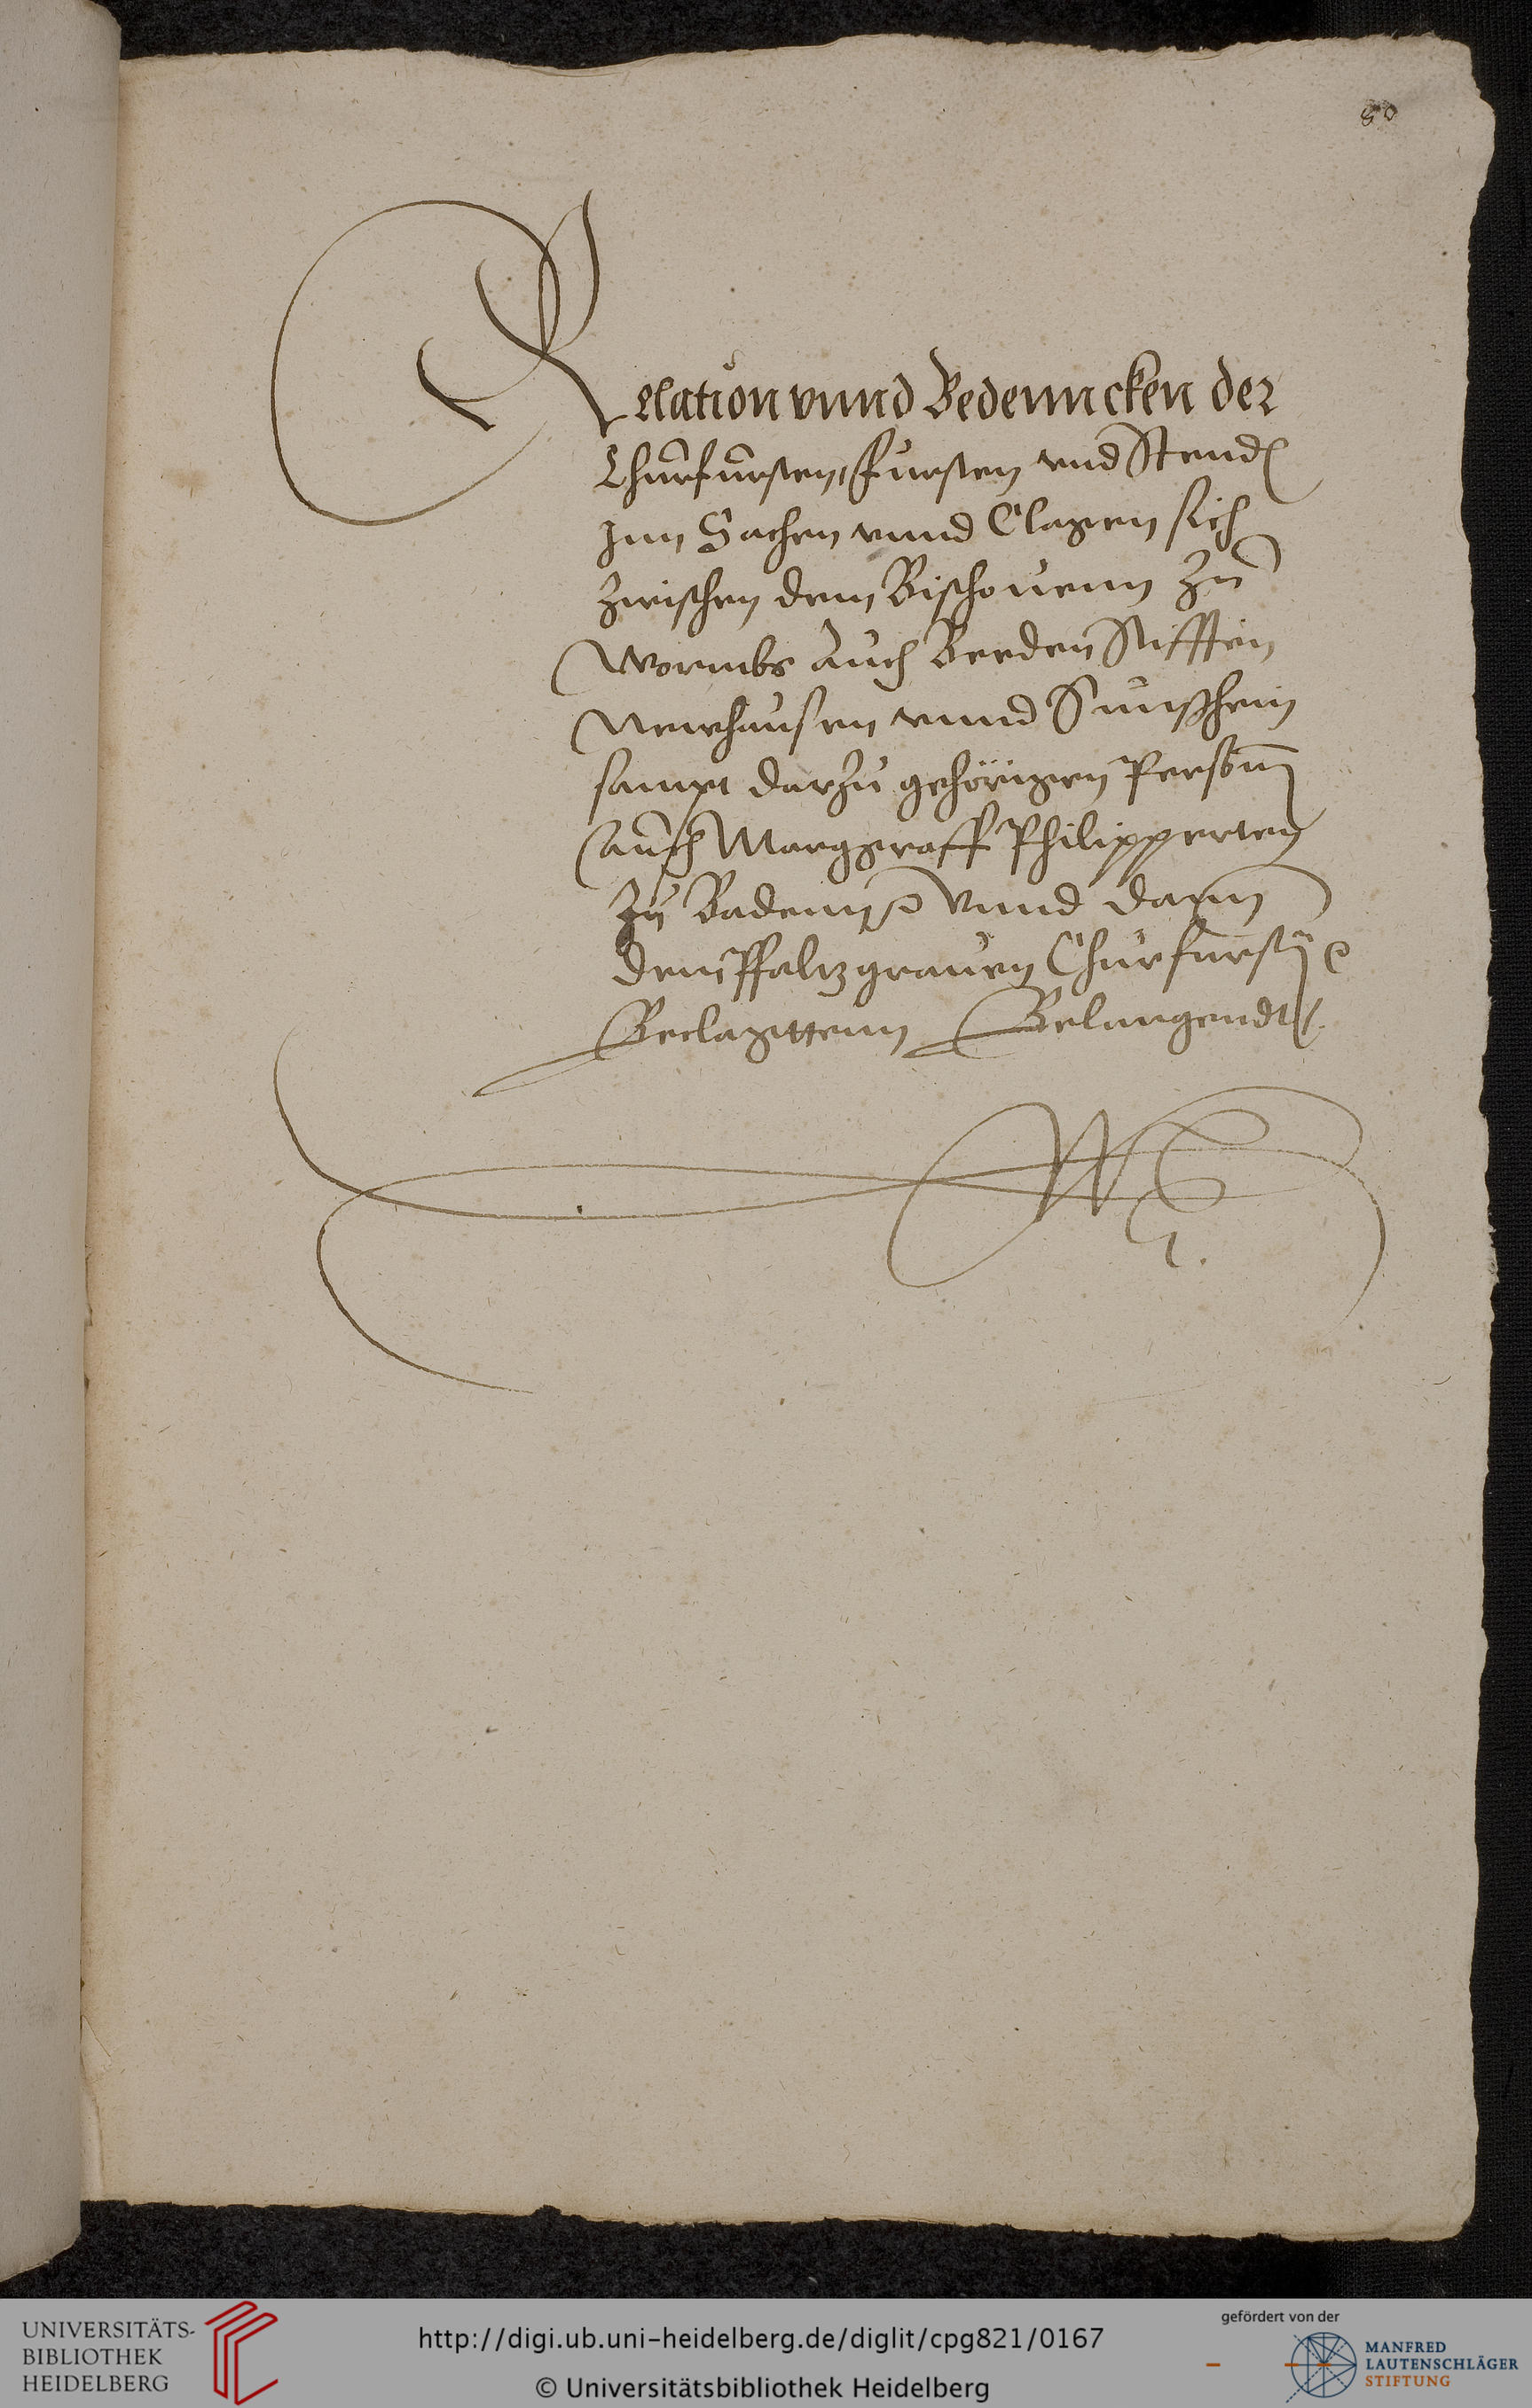 80
Relation vnnd Bedenncken der
Churfursten, Fursten vnd Stend
Inn Sachen vnnd Clagen sich
zwischen dem Bischouenn zu
Wormbs Auch Beeden Stifften
Newhausen vnnd Sunßheim
sampt darzu gehörigen Person
Auch Marggraff Philipperten
zu Badenn vnnd dann
dem Pfaltzgrauen Churfursten
Beclagttenn Belangendt
UNIVERSITÄTS-
BIBLIOTHEK
HEIDELBERG
http://digi.ub.uni-heidelberg.de/diglit/cpg821/0167
© Universitätsbibliothek Heidelberg
gefördert von der
MANFRED
LAUTENSCHLÄGER
STIFTUNG